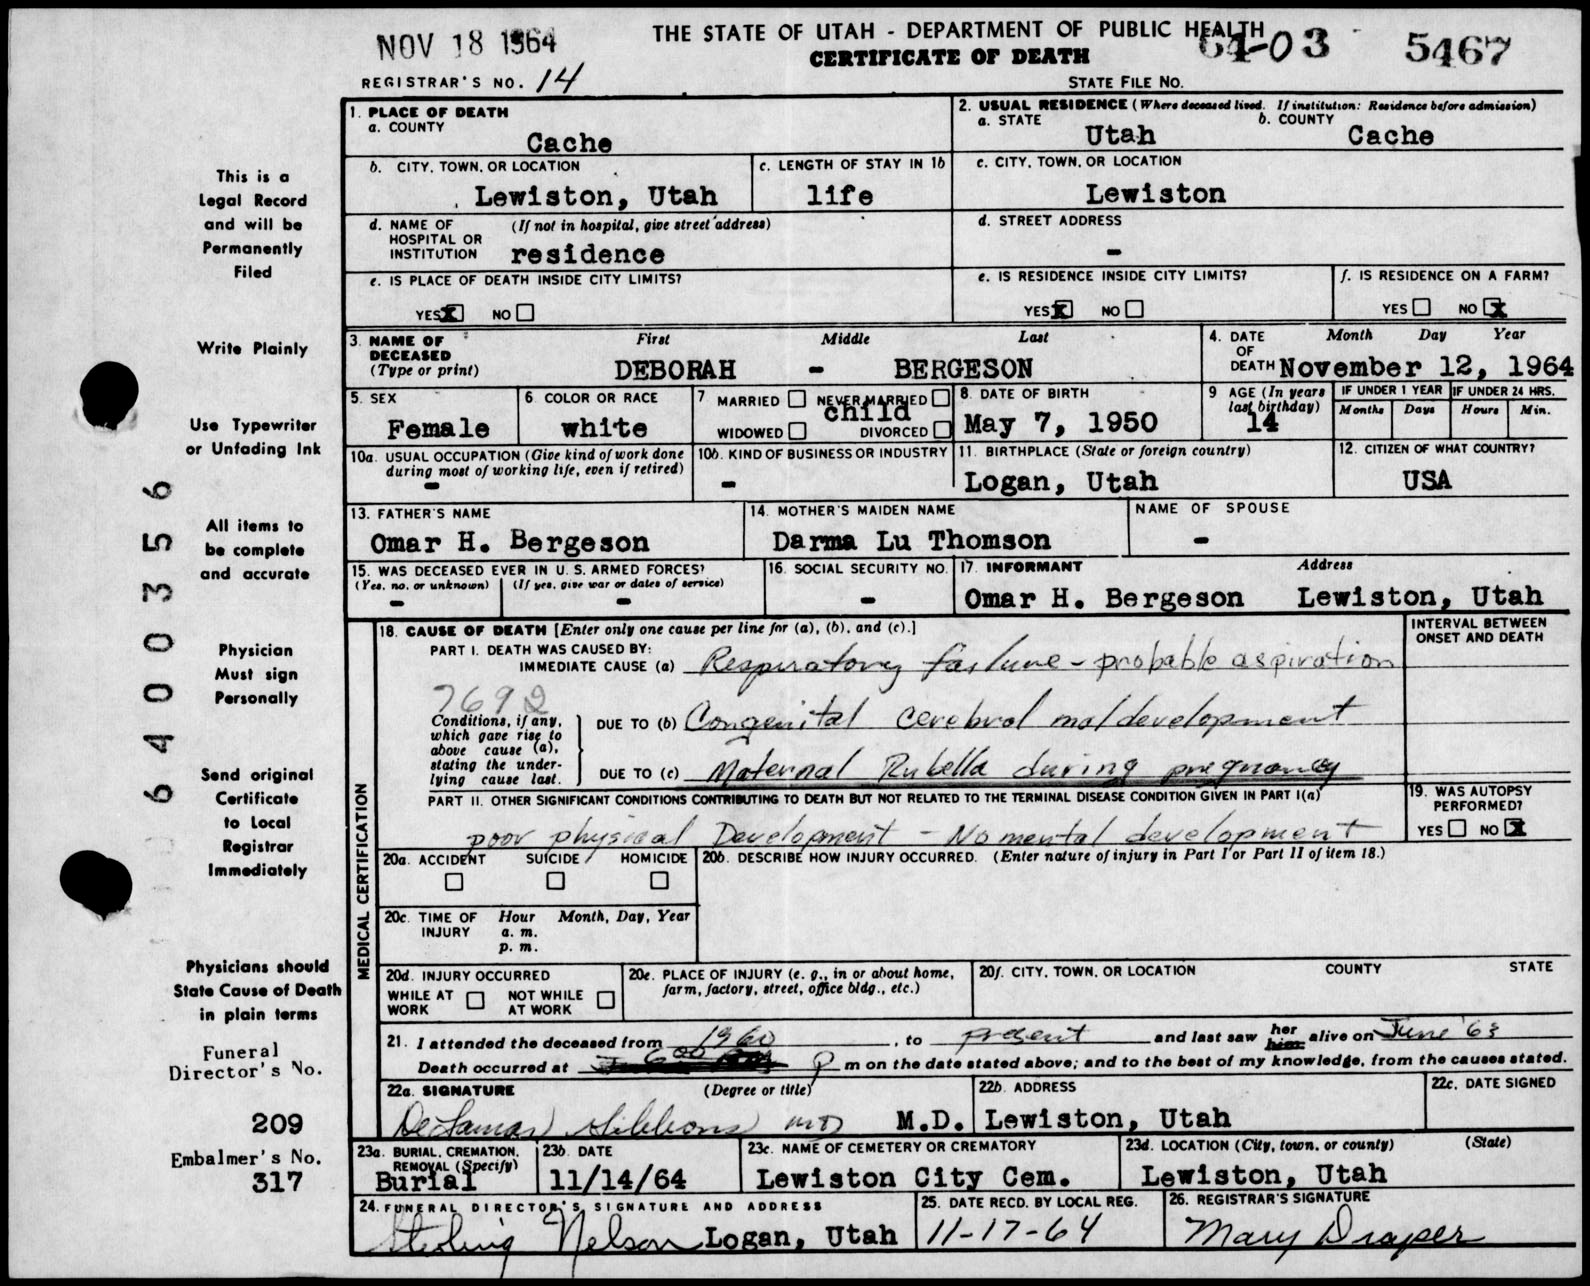 NOV 18 1964
THE STATE OF UTAH - DEPARTMENT OF PUBLIC HEALTH
64-03 5467
CERTIFICATE OF DEATH
REGISTRAR'S NO. 14
STATE FILE NO.
This is a
Legal Record
and will be
Permanently
Filed
Write Plainly
Use Typewriter
or Unfading Ink
All items to
be complete
and accurate
Physician
Must sign
Personally
Send original
Certificate
to Local
Registrar
Immediately
Physicians should
State Cause of Death
in plain terms
Funeral
Director's No.
209
Embalmer's No.
317
6400356
1. PLACE OF DEATH
a. COUNTY
Cache
2. USUAL RESIDENCE (Where deceased lived. If institution: Residence before admission)
a. STATE b. COUNTY
Utah Cache
b. CITY, TOWN, OR LOCATION
Lewiston, Utah
c. LENGTH OF STAY IN 1b
life
c. CITY, TOWN, OR LOCATION
Lewiston
d. NAME OF (If not in hospital, give street address)
HOSPITAL OR
INSTITUTION residence
d. STREET ADDRESS
-
e. IS PLACE OF DEATH INSIDE CITY LIMITS?
YES X NO
e. IS RESIDENCE INSIDE CITY LIMITS?
YES X NO
f. IS RESIDENCE ON A FARM?
YES NO X
3. NAME OF First Middle Last
DECEASED
(Type or print) DEBORAH - BERGESON
4. DATE Month Day Year
OF
DEATH November 12, 1964
5. SEX
Female
6. COLOR OR RACE
white
7 MARRIED NEVER MARRIED
child
WIDOWED DIVORCED
8. DATE OF BIRTH
May 7, 1950
9 AGE (In years
last birthday)
14
IF UNDER 1 YEAR IF UNDER 24 HRS.
Months Days Hours Min.
10a. USUAL OCCUPATION (Give kind of work done
during most of working life, even if retired)
-
10b. KIND OF BUSINESS OR INDUSTRY
-
11. BIRTHPLACE (State or foreign country)
Logan, Utah
12. CITIZEN OF WHAT COUNTRY?
USA
13. FATHER'S NAME
Omar H. Bergeson
14. MOTHER'S MAIDEN NAME
Darma Lu Thomson
NAME OF SPOUSE
-
15. WAS DECEASED EVER IN U. S. ARMED FORCES?
(Yes, no, or unknown) (If yes, give war or dates of service)
- -
16. SOCIAL SECURITY NO.
-
17. INFORMANT Address
Omar H. Bergeson Lewiston, Utah
MEDICAL CERTIFICATION
18. CAUSE OF DEATH [Enter only one cause per line for (a), (b), and (c).]
INTERVAL BETWEEN
ONSET AND DEATH
PART I. DEATH WAS CAUSED BY:
IMMEDIATE CAUSE (a) Respiratory failure - probable aspiration
7692
Conditions, if any,
which gave rise to
above cause (a),
stating the under-
lying cause last.
DUE TO (b) Congenital cerebral maldevelopment
DUE TO (c) Maternal Rubella during pregnancy
PART II. OTHER SIGNIFICANT CONDITIONS CONTRIBUTING TO DEATH BUT NOT RELATED TO THE TERMINAL DISEASE CONDITION GIVEN IN PART I(a)
poor physical Development - No mental development
19. WAS AUTOPSY
PERFORMED?
YES NO X
20a. ACCIDENT SUICIDE HOMICIDE
20b. DESCRIBE HOW INJURY OCCURRED. (Enter nature of injury in Part I or Part II of item 18.)
20c. TIME OF Hour Month, Day, Year
INJURY a. m.
p. m.
20d. INJURY OCCURRED
WHILE AT NOT WHILE
WORK AT WORK
20e. PLACE OF INJURY (e. g., in or about home,
farm, factory, street, office bldg., etc.)
20f. CITY, TOWN, OR LOCATION COUNTY STATE
21. I attended the deceased from 1960, to present and last saw her him alive on June '63
Death occurred at 600 P m on the date stated above; and to the best of my knowledge, from the causes stated.
22a. SIGNATURE (Degree or title)
DeLamar Gibbons MD M.D.
22b. ADDRESS
Lewiston, Utah
22c. DATE SIGNED
23a. BURIAL, CREMATION,
REMOVAL (Specify)
Burial
23b. DATE
11/14/64
23c. NAME OF CEMETERY OR CREMATORY
Lewiston City Cem.
23d. LOCATION (City, town, or county) (State)
Lewiston, Utah
24. FUNERAL DIRECTOR'S SIGNATURE AND ADDRESS
Sterling Nelson Logan, Utah
25. DATE RECD. BY LOCAL REG.
11-17-64
26. REGISTRAR'S SIGNATURE
Mary Draper